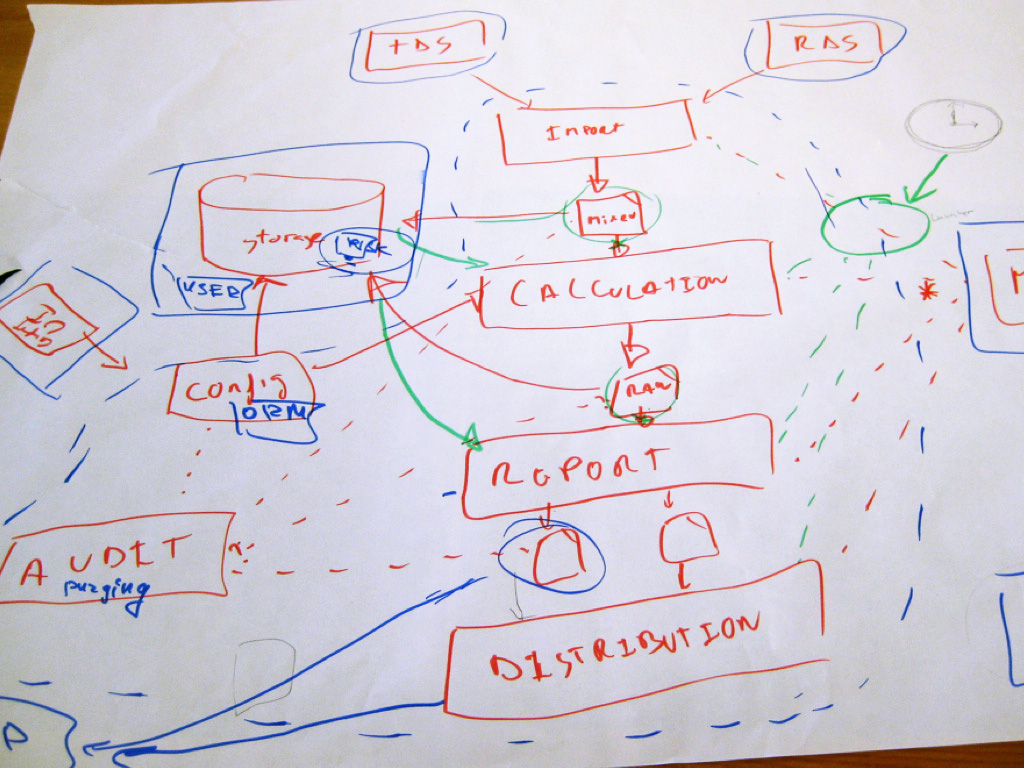 TDS
RDS
IMPORT
mixed
storage
RISK
USER
CALCULATION
CONFIG
ORM
RAW
REPORT
AUDIT
purging
DISTRIBUTION
P
M